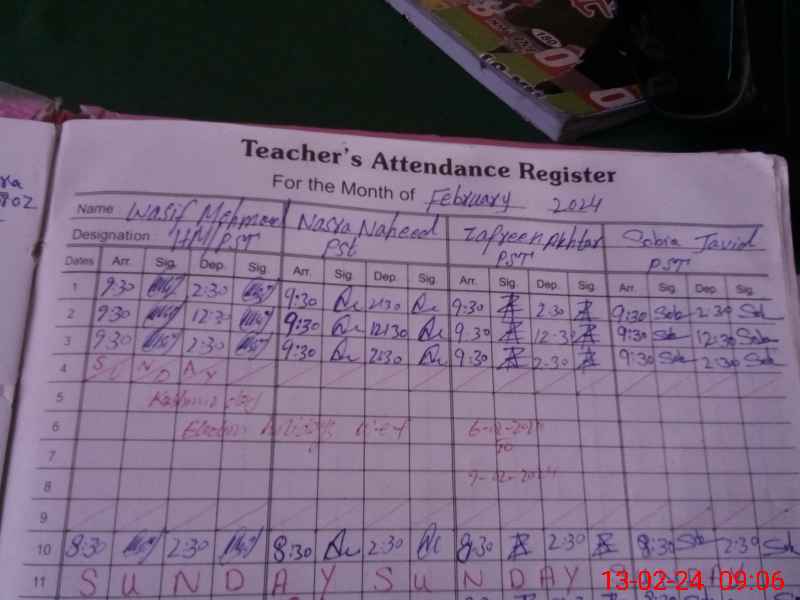 180
Teacher's Attendance Register
For the Month of February 2024
Name Wasif Mehmood Nasra Naheed Zafreen Akhtar Sobia Javid
Designation HM/PST PST PST PST
Dates Arr. Sig. Dep. Sig. Arr. Sig. Dep. Sig. Arr. Sig. Dep. Sig. Arr. Sig. Dep. Sig.
1 9:30 2:30 9:30 2:30 9:30 2:30 9:30 Sob 2:30 Sob
2 9:30 12:30 9:30 12:30 9:30 12:30 9:30 Sob 12:30 Sob
3 9:30 2:30 9:30 2:30 9:30 2:30 9:30 Sob 2:30 Sob
4 SUNDAY
5 Kashmir day
6 Election Holidays 6-02-2024
7 to
8 9-02-2024
9
10 8:30 2:30 8:30 2:30 8:30 2:30 8:30 Sob 2:30 Sob
11 SUNDAY SUNDAY
13-02-24 09:06